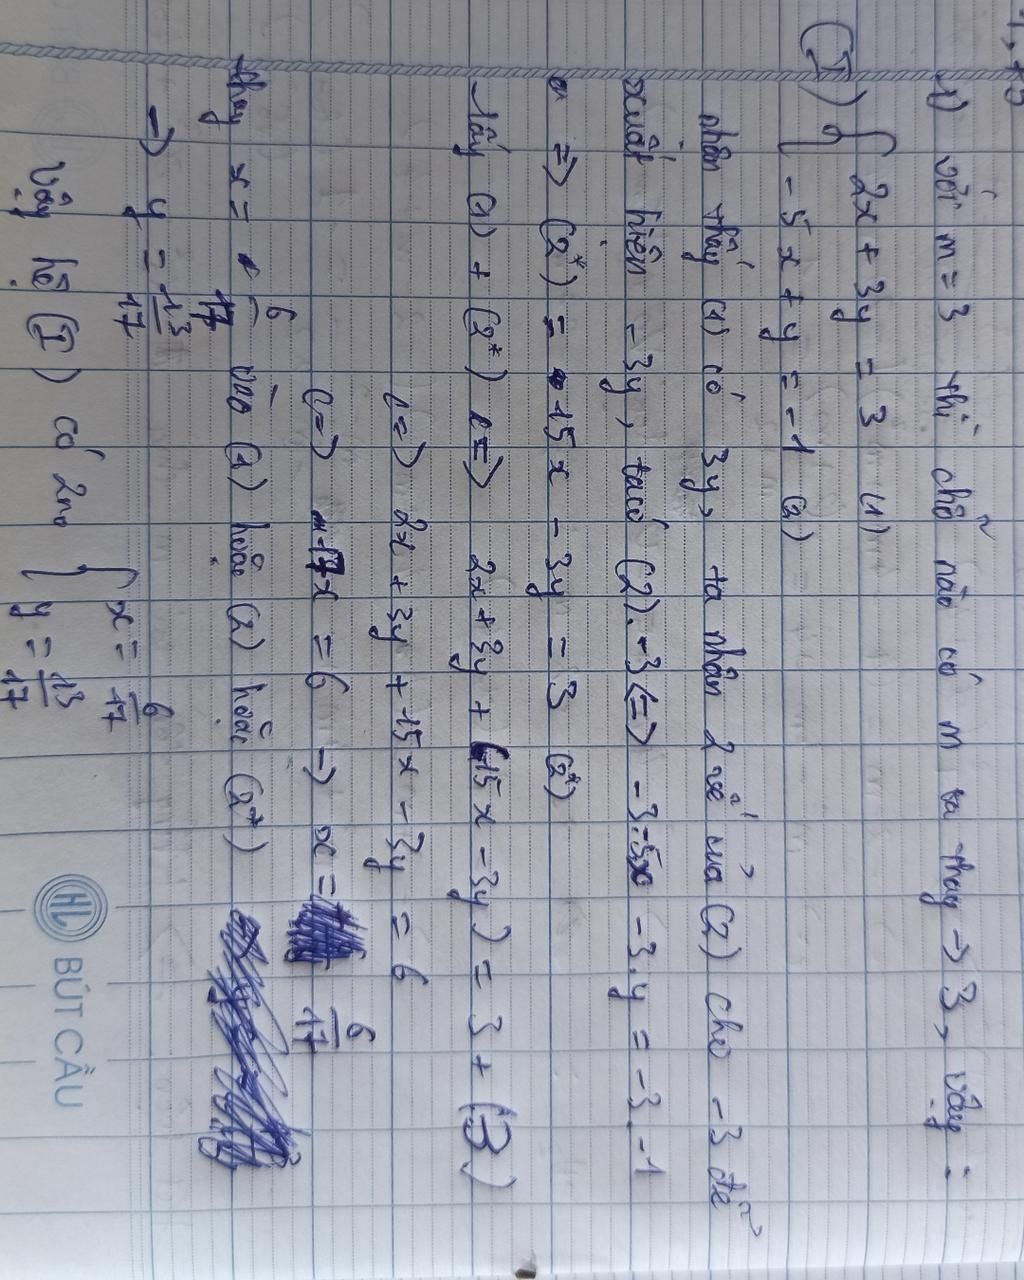 1) với m = 3 thì chỗ nào có m ta thay → 3, vậy :
(I) { 2x + 3y = 3 (1)
- 5x + y = -1 (2)
nhận thấy (1) có 3y, ta nhân 2 vế của (2) cho -3 để
xuất hiện -3y, ta có (2).-3 <=> -3.-5x -3.y = -3.-1
=> (2*) = 15x - 3y = 3 (2*)
- lấy (1) + (2*) <=> 2x + 3y + (15x - 3y) = 3 + (3)
<=> 2x + 3y + 15x - 3y = 6
<=> 17x = 6 → x = 6/17
thay x = 6/17 vào (1) hoặc (2) hoặc (2*)
→ y = 13/17
Vậy hệ (I) có 2no { x = 6/17
y = 13/17
HL BÚT CẦU